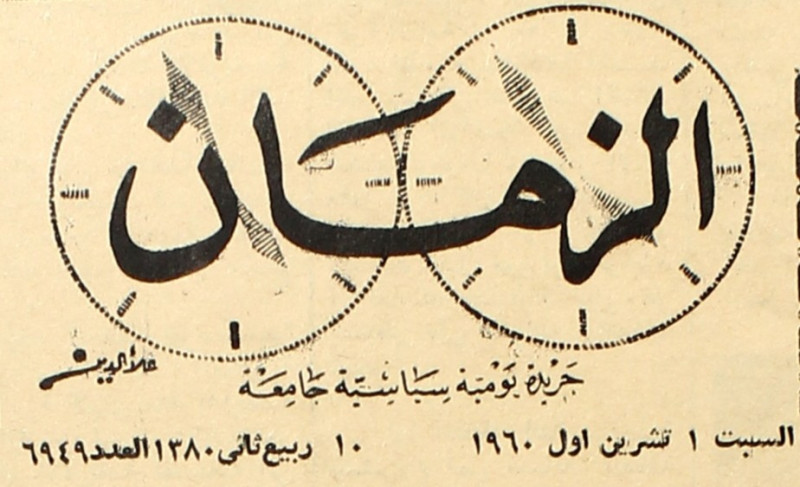 الزمان
علاء الدين
جريدة يومية سياسية جامعة
السبت ١ تشرين اول ١٩٦٠ ١٠ ربيع ثاني ١٣٨٠ العدد ٦٩٤٩